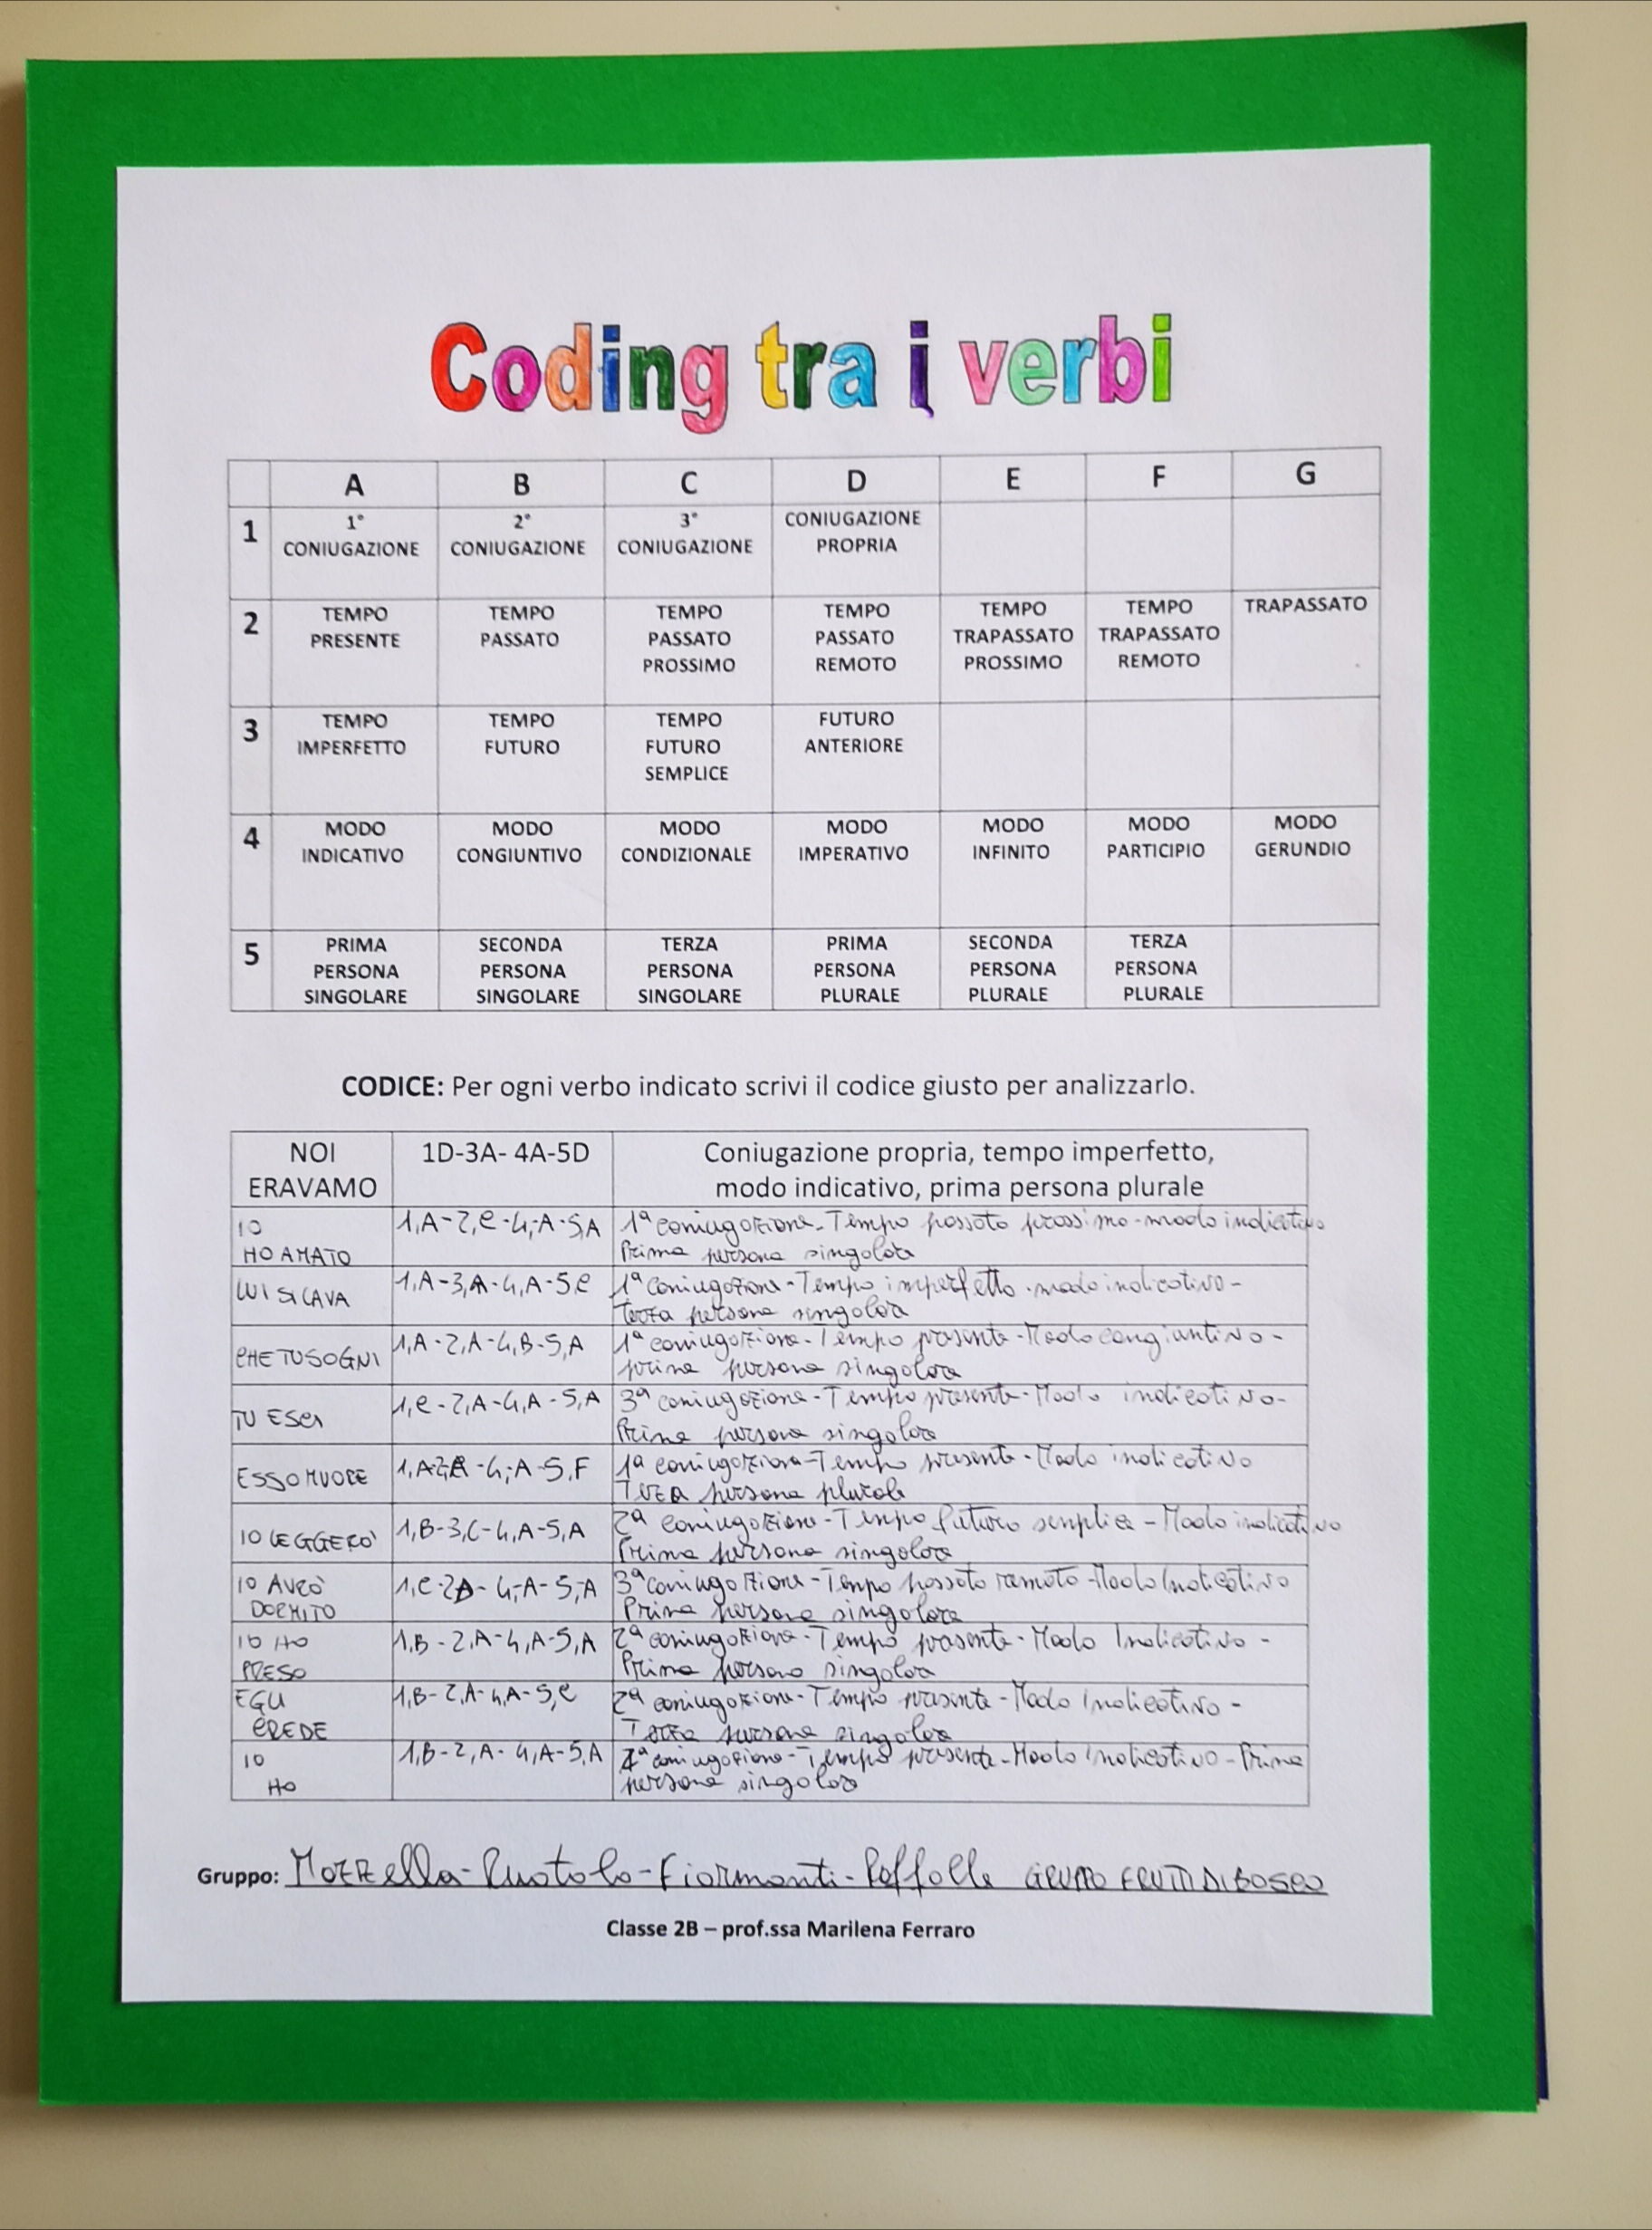 Coding tra i verbi
A B C D E F G
1 1° 2° 3° CONIUGAZIONE
CONIUGAZIONE CONIUGAZIONE CONIUGAZIONE PROPRIA
2 TEMPO TEMPO TEMPO TEMPO TEMPO TEMPO TRAPASSATO
PRESENTE PASSATO PASSATO PASSATO TRAPASSATO TRAPASSATO
PROSSIMO REMOTO PROSSIMO REMOTO
3 TEMPO TEMPO TEMPO FUTURO
IMPERFETTO FUTURO FUTURO ANTERIORE
SEMPLICE
4 MODO MODO MODO MODO MODO MODO MODO
INDICATIVO CONGIUNTIVO CONDIZIONALE IMPERATIVO INFINITO PARTICIPIO GERUNDIO
5 PRIMA SECONDA TERZA PRIMA SECONDA TERZA
PERSONA PERSONA PERSONA PERSONA PERSONA PERSONA
SINGOLARE SINGOLARE SINGOLARE PLURALE PLURALE PLURALE
CODICE: Per ogni verbo indicato scrivi il codice giusto per analizzarlo.
NOI 1D-3A- 4A-5D Coniugazione propria, tempo imperfetto,
ERAVAMO modo indicativo, prima persona plurale
IO 1,A-2,C-4,A-5,A 1ª coniugazione-Tempo passato prossimo-modo indicativo
HO AMATO Prima persona singolare
LUI SI LAVA 1,A-3,A-4,A-5,C 1ª coniugazione-Tempo imperfetto-modo indicativo-
Terza persona singolare
CHE TU SOGNI 1,A-2,A-4,B-5,A 1ª coniugazione-Tempo presente-Modo congiuntivo-
prima persona singolare
TU ESCI 1,C-2,A-4,A-5,A 3ª coniugazione-Tempo presente-Modo indicativo-
Prima persona singolare
ESSO MUORE 1,A-2,A-4,A-5,F 1ª coniugazione-Tempo presente-Modo indicativo
Terza persona plurale
IO LEGGERÒ 1,B-3,C-4,A-5,A 2ª coniugazione-Tempo futuro semplice-Modo indicativo
Prima persona singolare
IO AVRÒ 1,C-2D-4,A-5,A 3ª coniugazione-Tempo passato remoto-Modo Indicativo
DORMITO Prima persona singolare
IO HO 1,B-2,A-4,A-5,A 2ª coniugazione-Tempo presente-Modo Indicativo-
PRESO Prima persona singolare
EGLI 1,B-2,A-4,A-5,C 2ª coniugazione-Tempo presente-Modo Indicativo-
CREDE Terza persona singolare
IO 1,B-2,A-4,A-5,A 2ª coniugazione-Tempo presente-Modo Indicativo-Prima
HO persona singolare
Gruppo: Mozzella-Ruotolo-Fiormonti-Raffaele GRUPPO FRUTTI DI BOSCO
Classe 2B – prof.ssa Marilena Ferraro